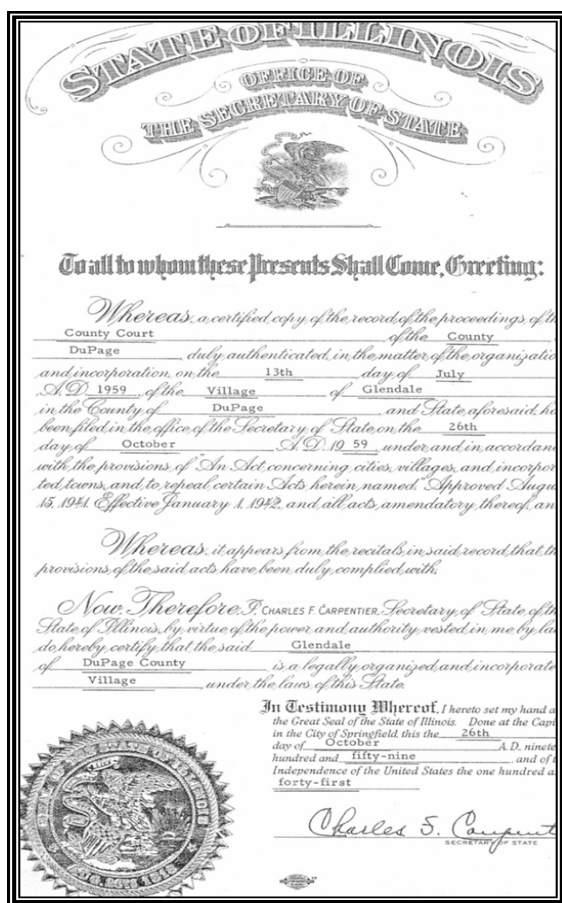 STATE OF ILLINOIS
OFFICE OF
THE SECRETARY OF STATE
To all to whom these Presents Shall Come, Greeting:
Whereas, a certified copy of the record of the proceedings of th
County Court of the County
DuPage duly authenticated, in the matter of the organizatio
and incorporation on the 13th day of July
A.D. 1959, of the Village of Glendale
in the County of DuPage and State aforesaid, ha
been filed in the office of the Secretary of State, on the 26th
day of October A.D. 19 59 under and in accordan
with the provisions of "An Act concerning cities, villages, and incorpor
ted towns, and to repeal certain Acts herein named." Approved Augu
15, 1941. Effective January 1, 1942, and all acts amendatory thereof, an
Whereas, it appears from the recitals in said record, that th
provisions of the said acts have been duly complied with;
Now Therefore, I, CHARLES F. CARPENTIER, Secretary of State of th
State of Illinois, by virtue of the power and authority vested in me by la
do hereby certify that the said Glendale
of DuPage County is a legally organized and incorporate
Village under the laws of this State.
In Testimony Whereof, I hereto set my hand a
the Great Seal of the State of Illinois. Done at the Capi
in the City of Springfield, this the 26th
day of October A.D. ninete
hundred and fifty-nine and of t
Independence of the United States the one hundred a
forty-first
Charles F. Carpent
SECRETARY OF STATE